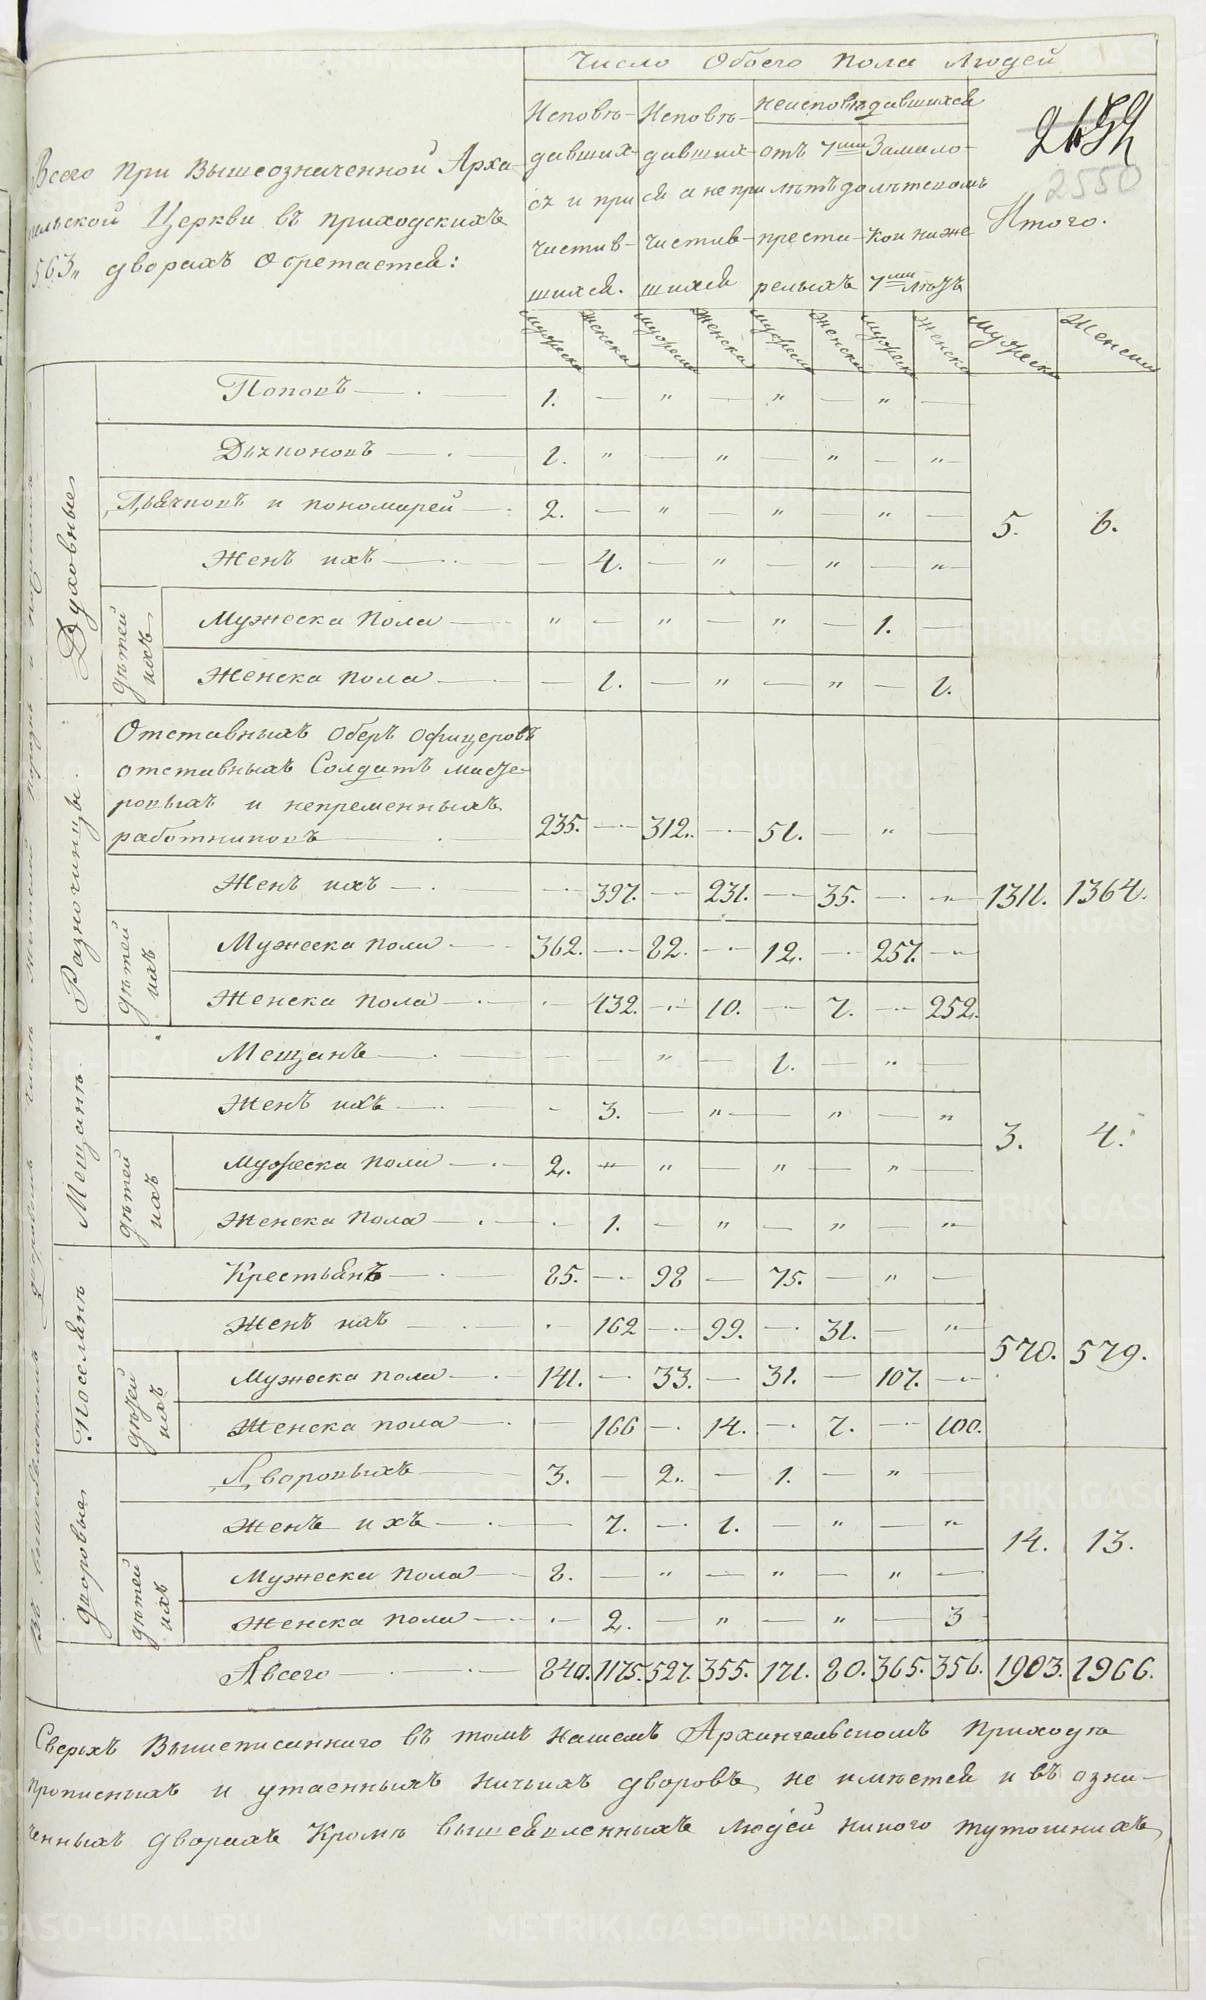 Число Обоего Пола Людей
Исповѣ- Исповѣ- неисповѣдавшихся
давших- давших- отъ 7ми Замало-
ся и при ся а не при лѣтъ до лѣтствомъ
чистив- чистив- преста- кои ниже Итого.
шихся. шихся релыхъ 7ми лѣтъ
2550
Всего При вышеозначенной Арха-
нгельской Церкви въ приходскихъ
563 дворахъ обретается:
Мужеска Женска Мужеска Женска Мужеска Женска Мужеска Женска Мужеска Женска
Духовные
Поповъ — 1. — " — " — " —
Дьяконовъ — 1. " — " — " — "
Дьячковъ и пономарей — 2. — " — " — " — 5. 6.
Женъ ихъ — — 4. — " — " — "
дѣтей ихъ
Мужеска Пола — " — " — " — 1. —
Женска пола — — 1. — " — " — 1.
Разночинцы.
Отставныхъ Оберъ офицеровъ
отставныхъ Солдатъ масте-
ровыхъ и непременныхъ
работниковъ — 235. — 312. — 51. — " —
Женъ ихъ — — 397. — 231. — 35. — " 1311. 1364.
дѣтей ихъ
Мужеска пола — 362. — 82. — 12. — 257. —
Женска пола — — 432. — 10. — 7. — 252.
Мещанъ.
Мещанъ — — — " — 1. — " —
Женъ ихъ — - 3. — " — " — "
3. 4.
дѣтей ихъ
Мужеска пола — 2. — " — " — " —
Женска пола — - 1. — " — " — "
Поселянъ
Крестьянъ — 85. — 98 — 75. — " —
Женъ ихъ — - 162 — 99. — 31. — "
570. 579.
дѣтей ихъ
Мужеска пола — 141. — 33. — 31. — 107. —
Женска пола — — 166 — 14. — 7. — 100.
дворовые
Дворовыхъ — 3. — 2. — 1. — "
Женъ ихъ — — 7. — 1. — " — "
14. 13.
дѣтей ихъ
Мужеска пола — 8. — " — " — " —
Женска пола — - 2. — " — " — 3
А всего — 840. 1175. 527. 355. 171. 80. 365. 356. 1903. 1966.
Сверхъ Вышеписаннаго въ томъ нашемъ Архангельскомъ Приходѣ
прописныхъ и утаенныхъ ничьихъ дворовъ не имѣется и въ озна-
ченныхъ дворахъ Кромѣ вышеявленныхъ людей никого тутошнихъ
METRIKI.GASO-URAL.RU